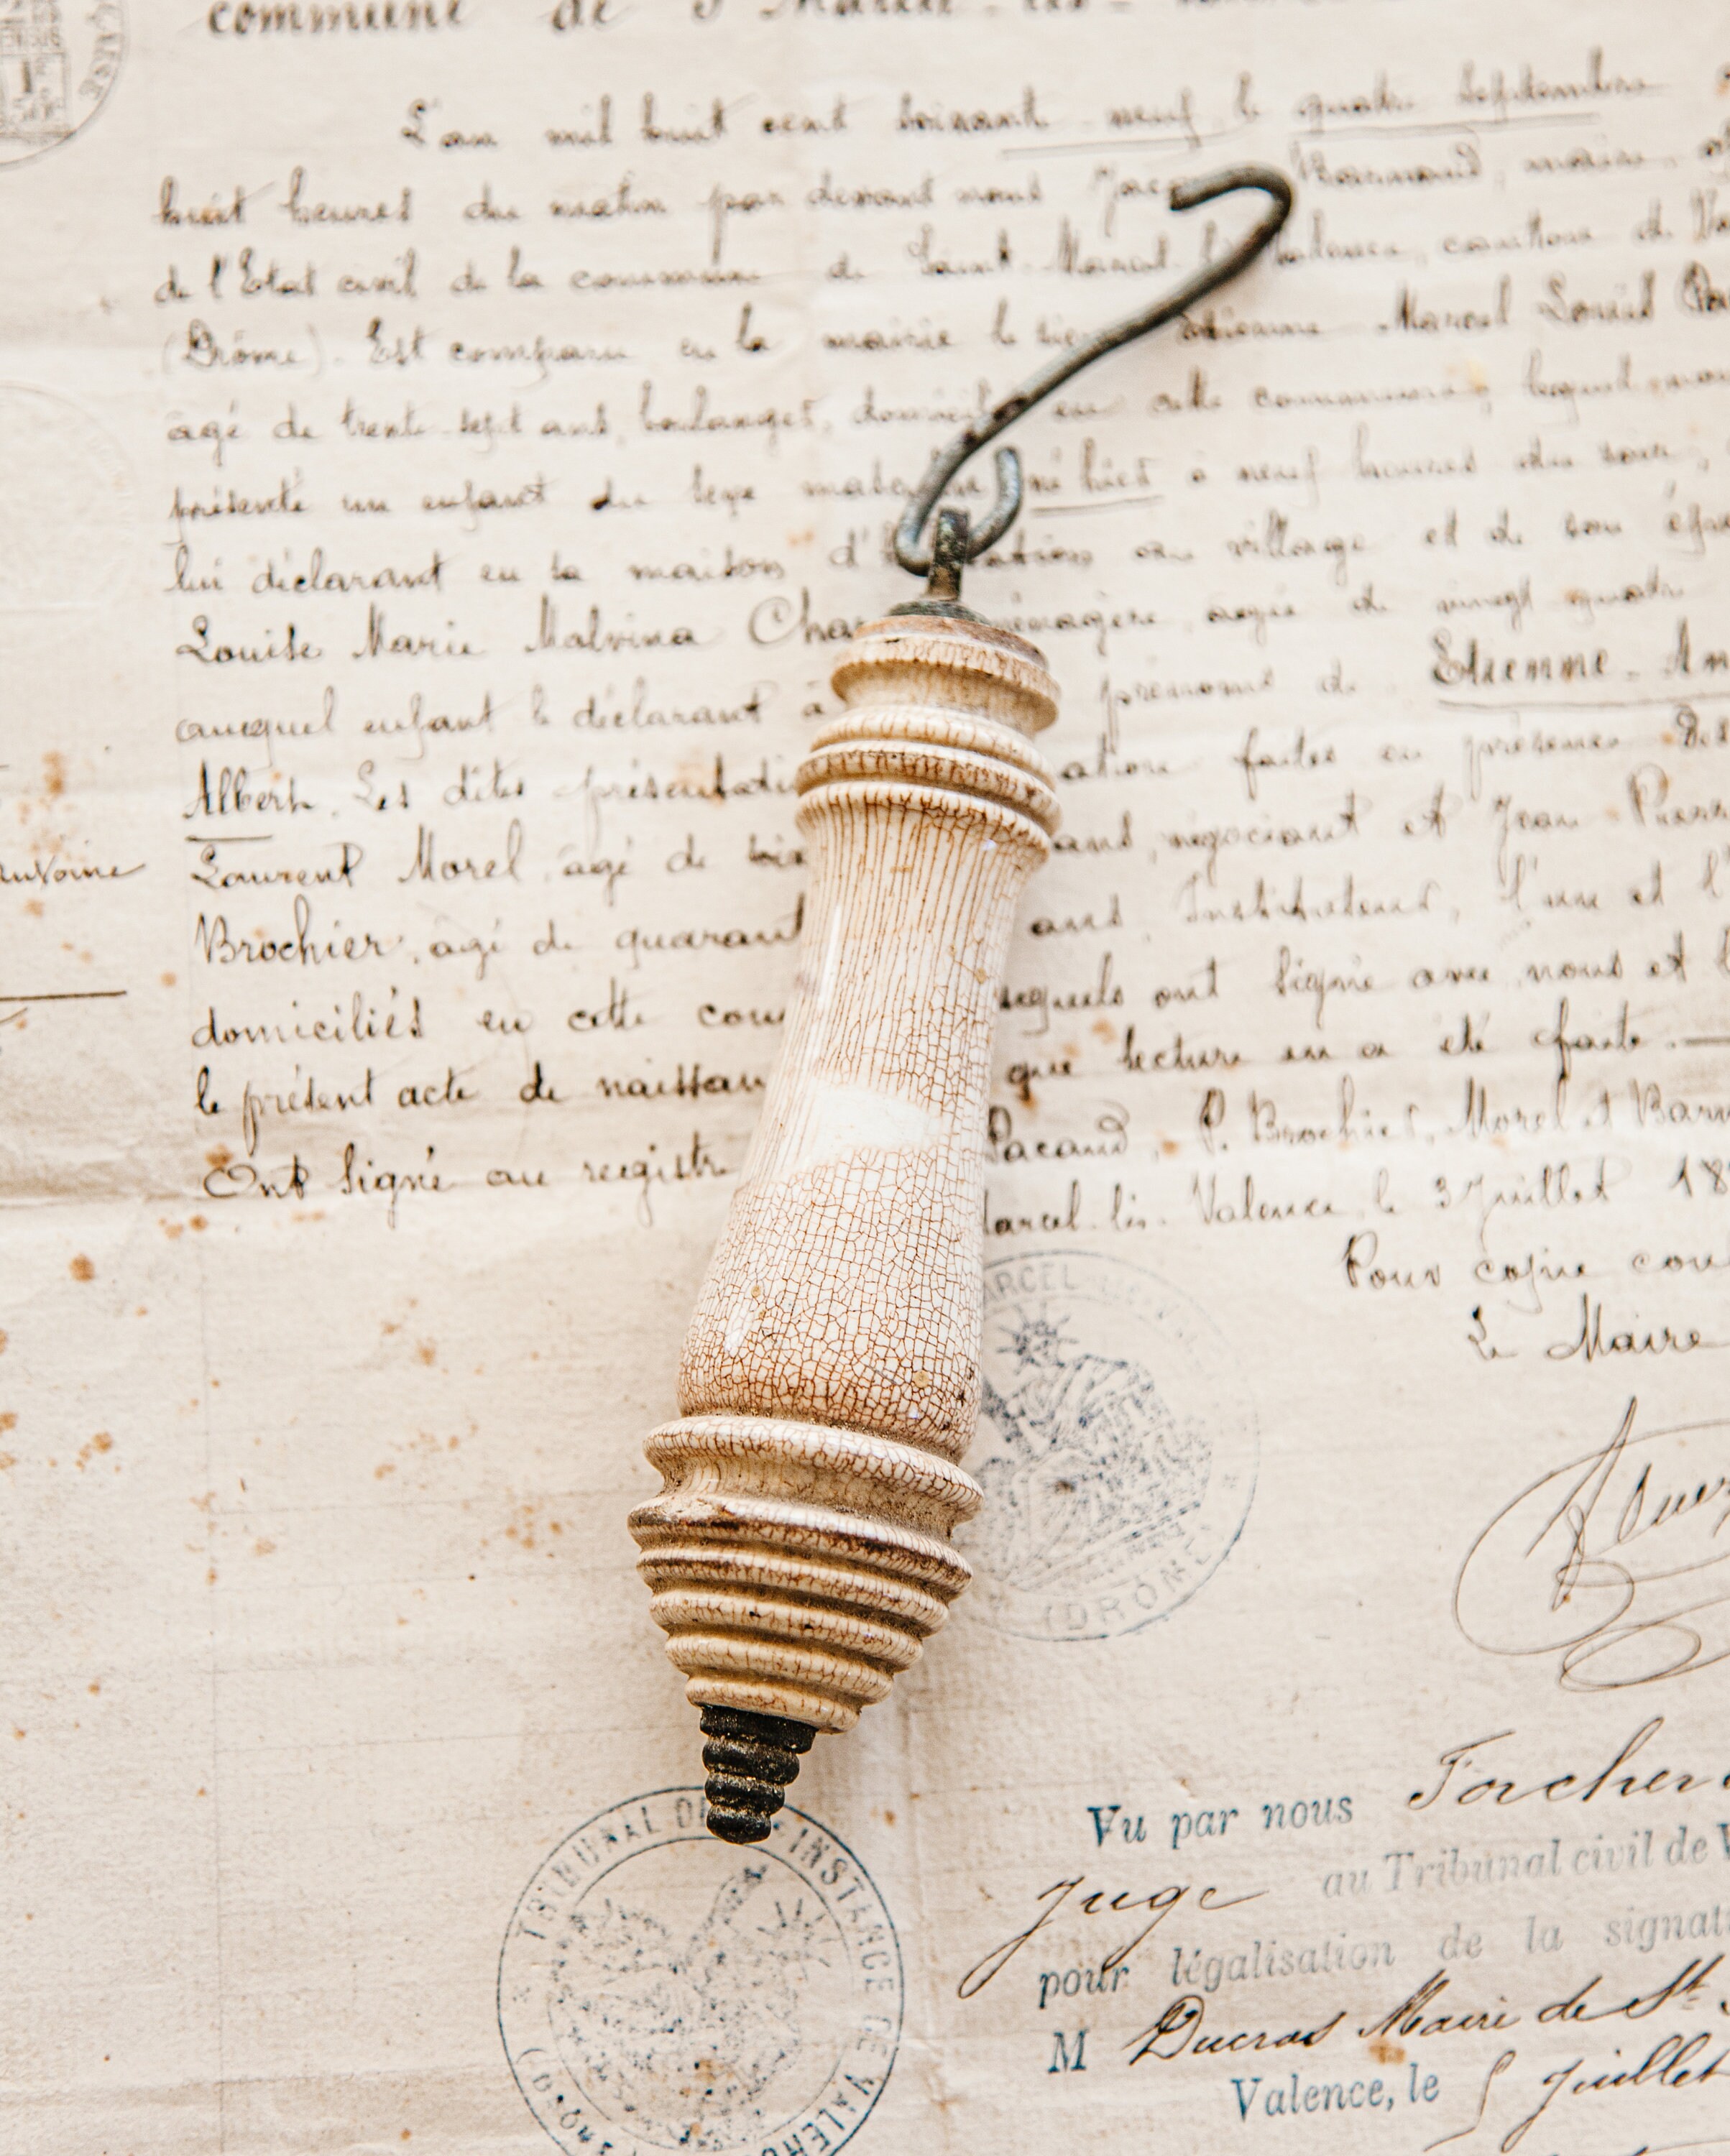 commune de St Marcel-lès-
L'an mil huit cent soixante neuf le quatre septembre
huit heures du matin par devant nous Barnaud, maire
de l'Etat civil de la commune de Saint-Marcel-l Valence, canton de
(Drôme). Est comparu en la mairie le sieur Etienne Marcel Louis
âgé de trente-sept ans, boulanger, domicilié en cette commune, lequel nous
présenté un enfant du sexe né hier à neuf heures du soir,
lui déclarant en sa maison d' au village et de son
Louise Marie Malvina Cha ménagère, agée de vingt quatre
auquel enfant le déclarant a prénoms de Etienne-An
Albert. Les dites présentati ation faites en présence
Laurent Morel, âgé de ans, négociant et Jean Pierre
Antoine
Brochier, âgé de quarant ans, Instituteur, l'un et l'
domiciliés en cette com lesquels ont signé avec nous et
le présent acte de naissan que lecture en a été faite.
Ont signé au registre Pacaud, P. Brochier, Morel et Barn
Marcel-lès-Valence, le 3 Juillet 18
Pour copie con
Le Maire
ARCEL
(DRÔME)
TRIBUNAL DE INSTANCE DE VALENCE
(DRÔME
Vu par nous
Juge au Tribunal civil de V
pour légalisation de la signat
M Ducros Maire de St
Valence, le 5 Juillet